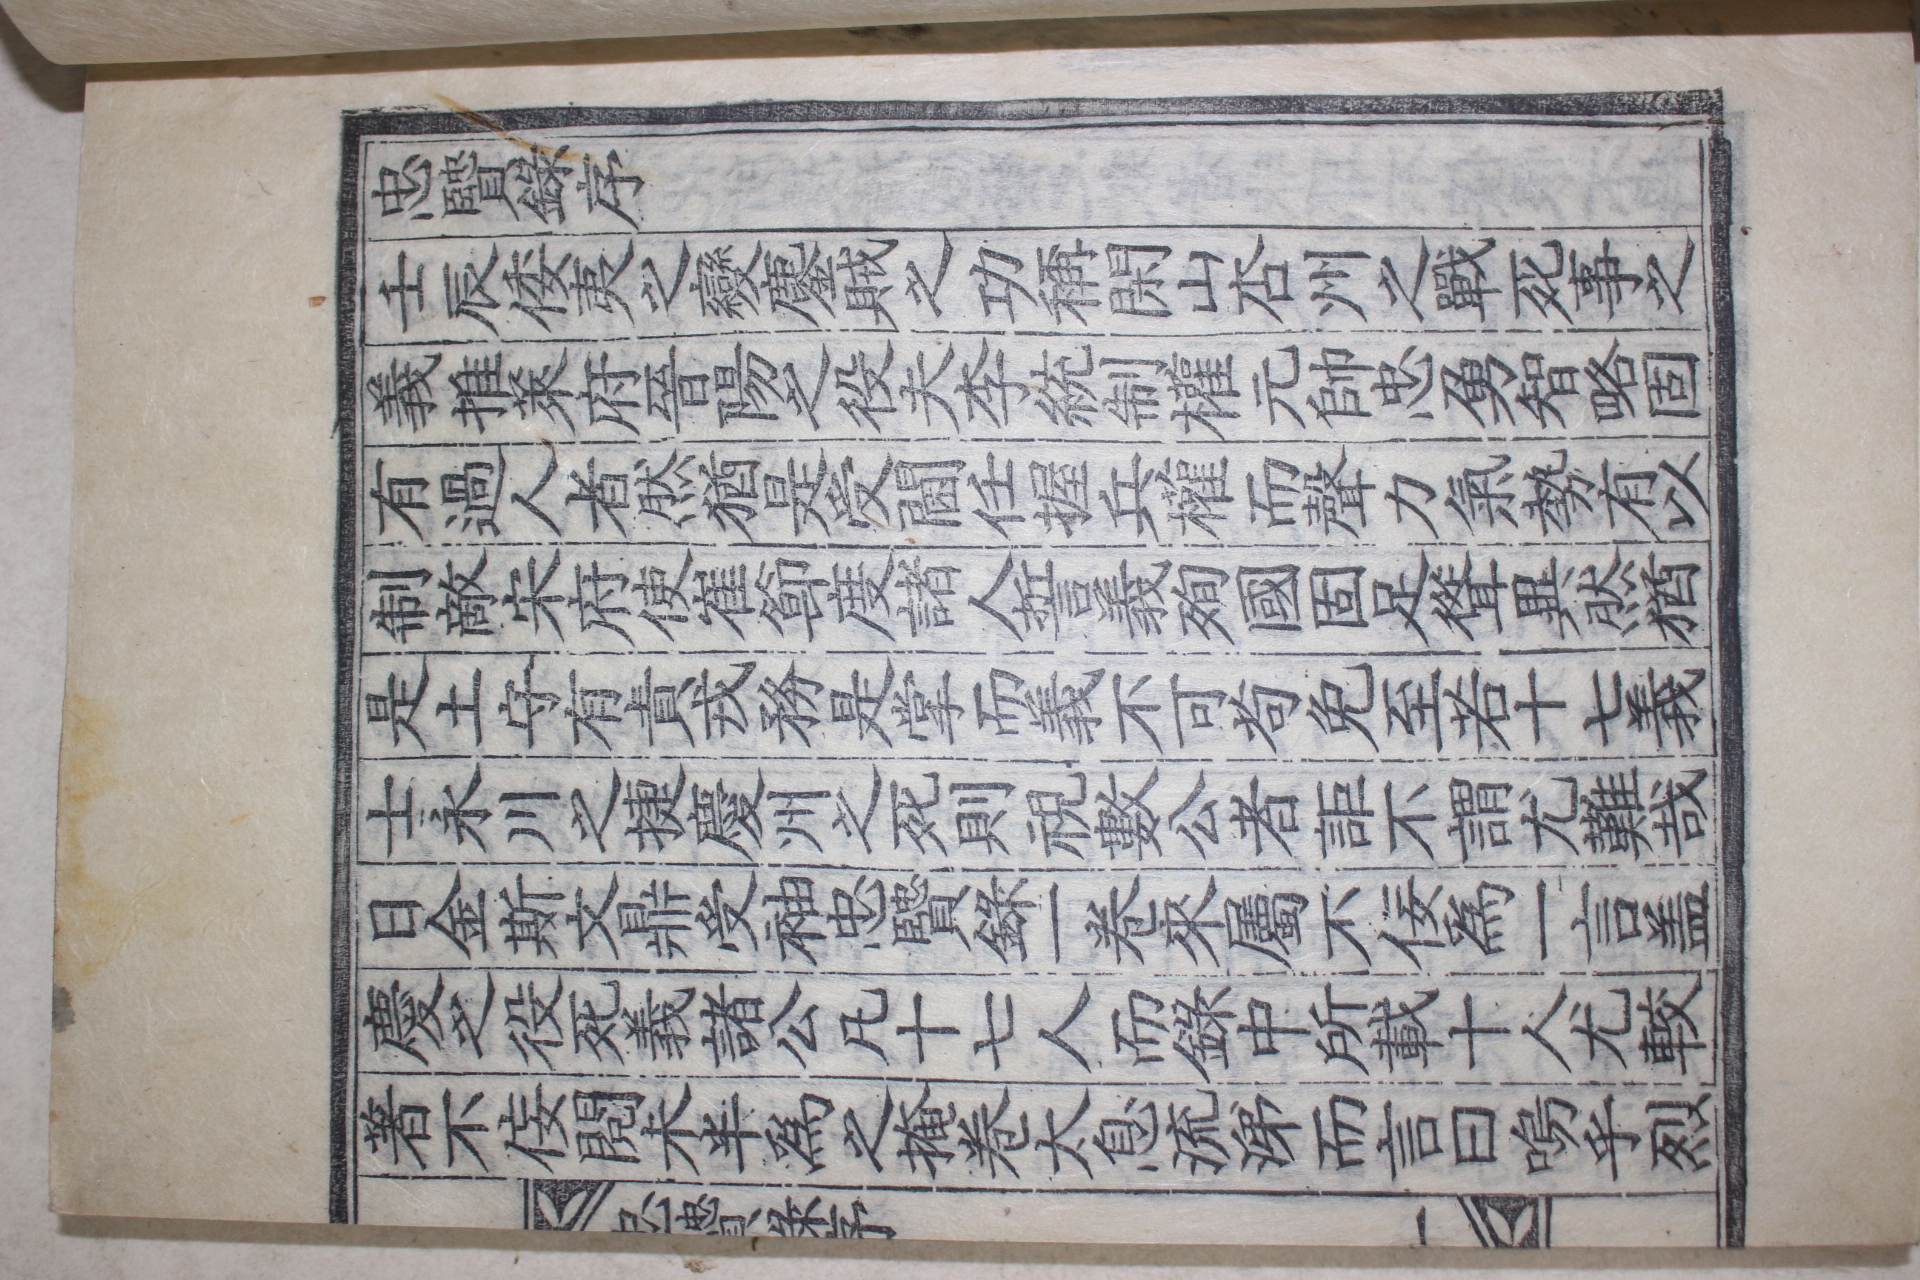 忠贒錄序
壬辰倭夷之變鏖賊之功稱閑山杏州之戰死事之
義推萊府晉陽之役夫李統制權元帥忠勇智略固
有過人者然猶是受閫任握兵權而聲力氣勢有以
制敵宋府使崔節度諸人義殉國固足聳異然猶
是土守有責戎務是掌而義不可苟免至若十七義
士永川之捷慶州之死則視數公者詎不謂尤難哉
日金斯文鼎受袖忠贒錄一卷來屬不佞爲一言盖
慶之役死義諸公凡十七人而錄中所載十人尤較
著不佞閱未半爲之掩卷太息流涕而言曰嗚乎烈
忠贒錄序 一